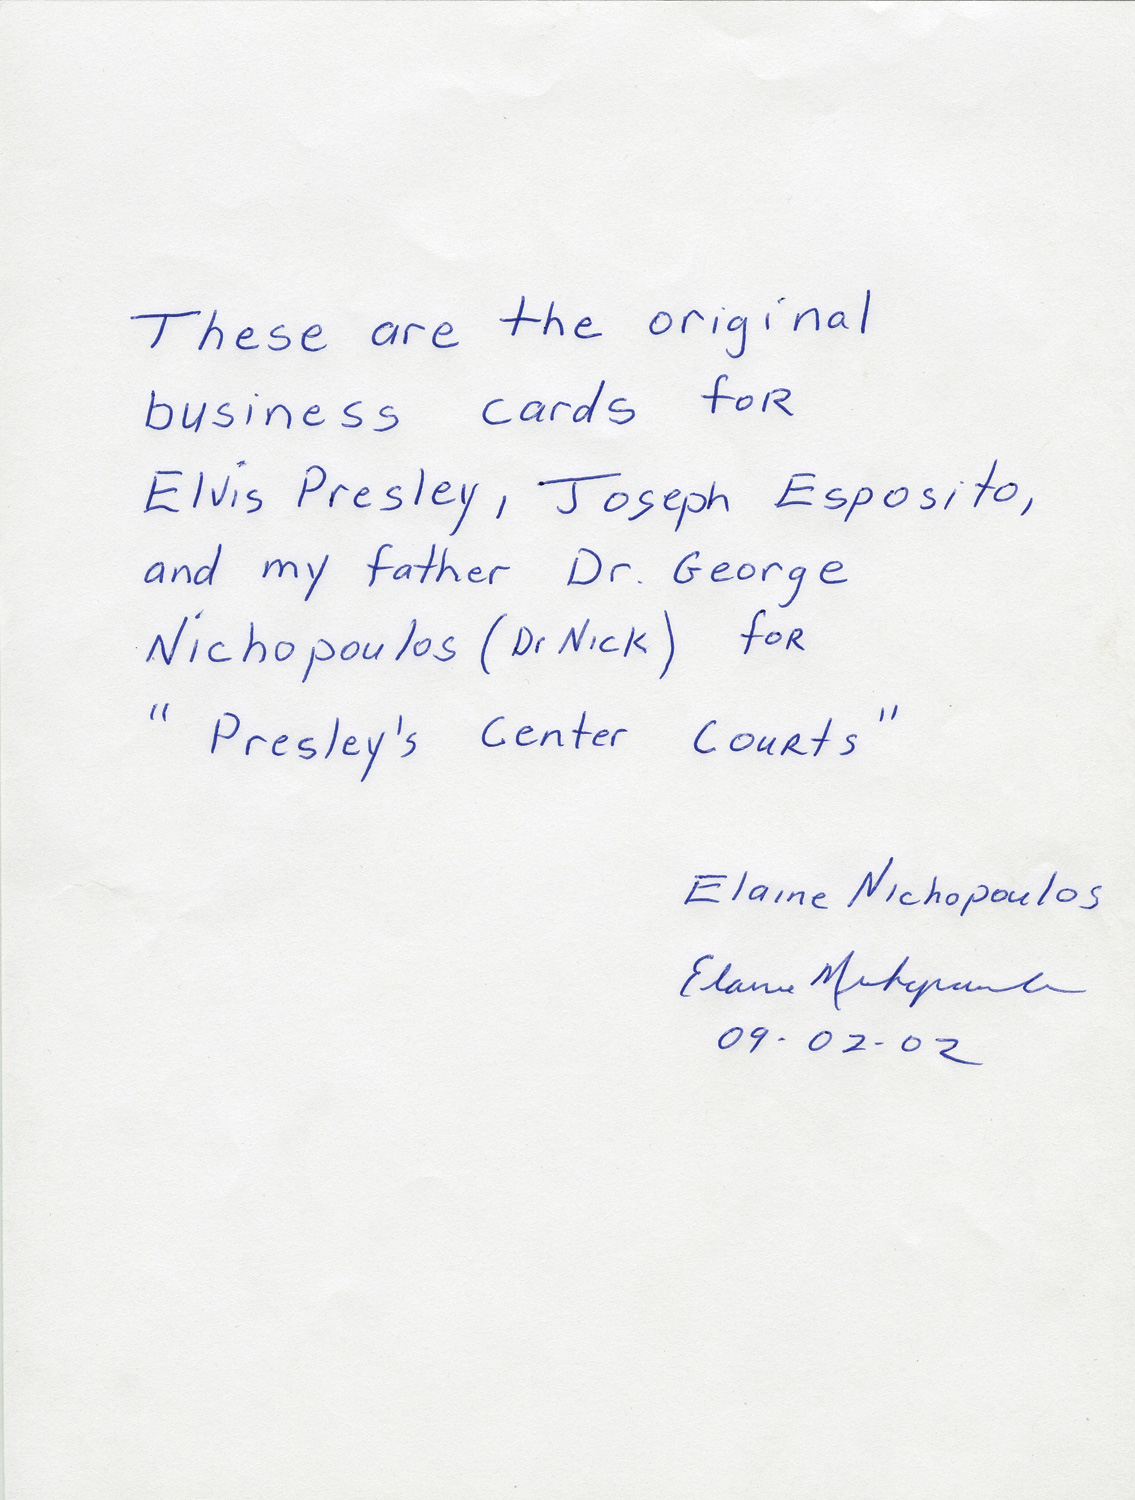 These are the original
business cards foR
Elvis Presley, Joseph Esposito,
and my father Dr. George
Nichopoulos (Dr Nick) foR
" Presley's Center CouRts"
Elaine Nichopoulos
Elaine Nichopoulos
09-02-02